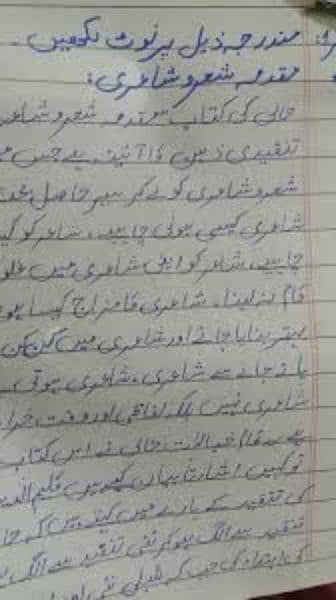 مندرجہ ذیل پر نوٹ لکھیں۔
مقدمہ شعر و شاعری:
حالی کی کتاب "مقدمہ شعر و شاعری
تنقیدی ذہن کا آئینہ ہے جس
شعر و شاعری کو لے کر سیر حاصل بحث
شاعری کیسی ہونی چاہیے، شاعر کو
چاہیے، شاعر کو اپنی شاعری میں
کام نہ لینا۔ شاعری کا مزاج کیسا ہو
بہتر بنایا جائے اور شاعری میں کن کن
پائے جانے سے شاعری، شاعری ہوتی
شاعری نہیں بلکہ لفاظی اور وقت
یہ تمام خیالات حالی نے اس کتاب
تو کہیں اشارتاً بیان کیے ہیں کلیم الدین
کی تنقید کے بارے میں کہتے ہیں کہ
تنقید سے الگ ہو کر نئی تنقید سے الگ
کی ابتدا کی جب کہ شبلی نئی اور